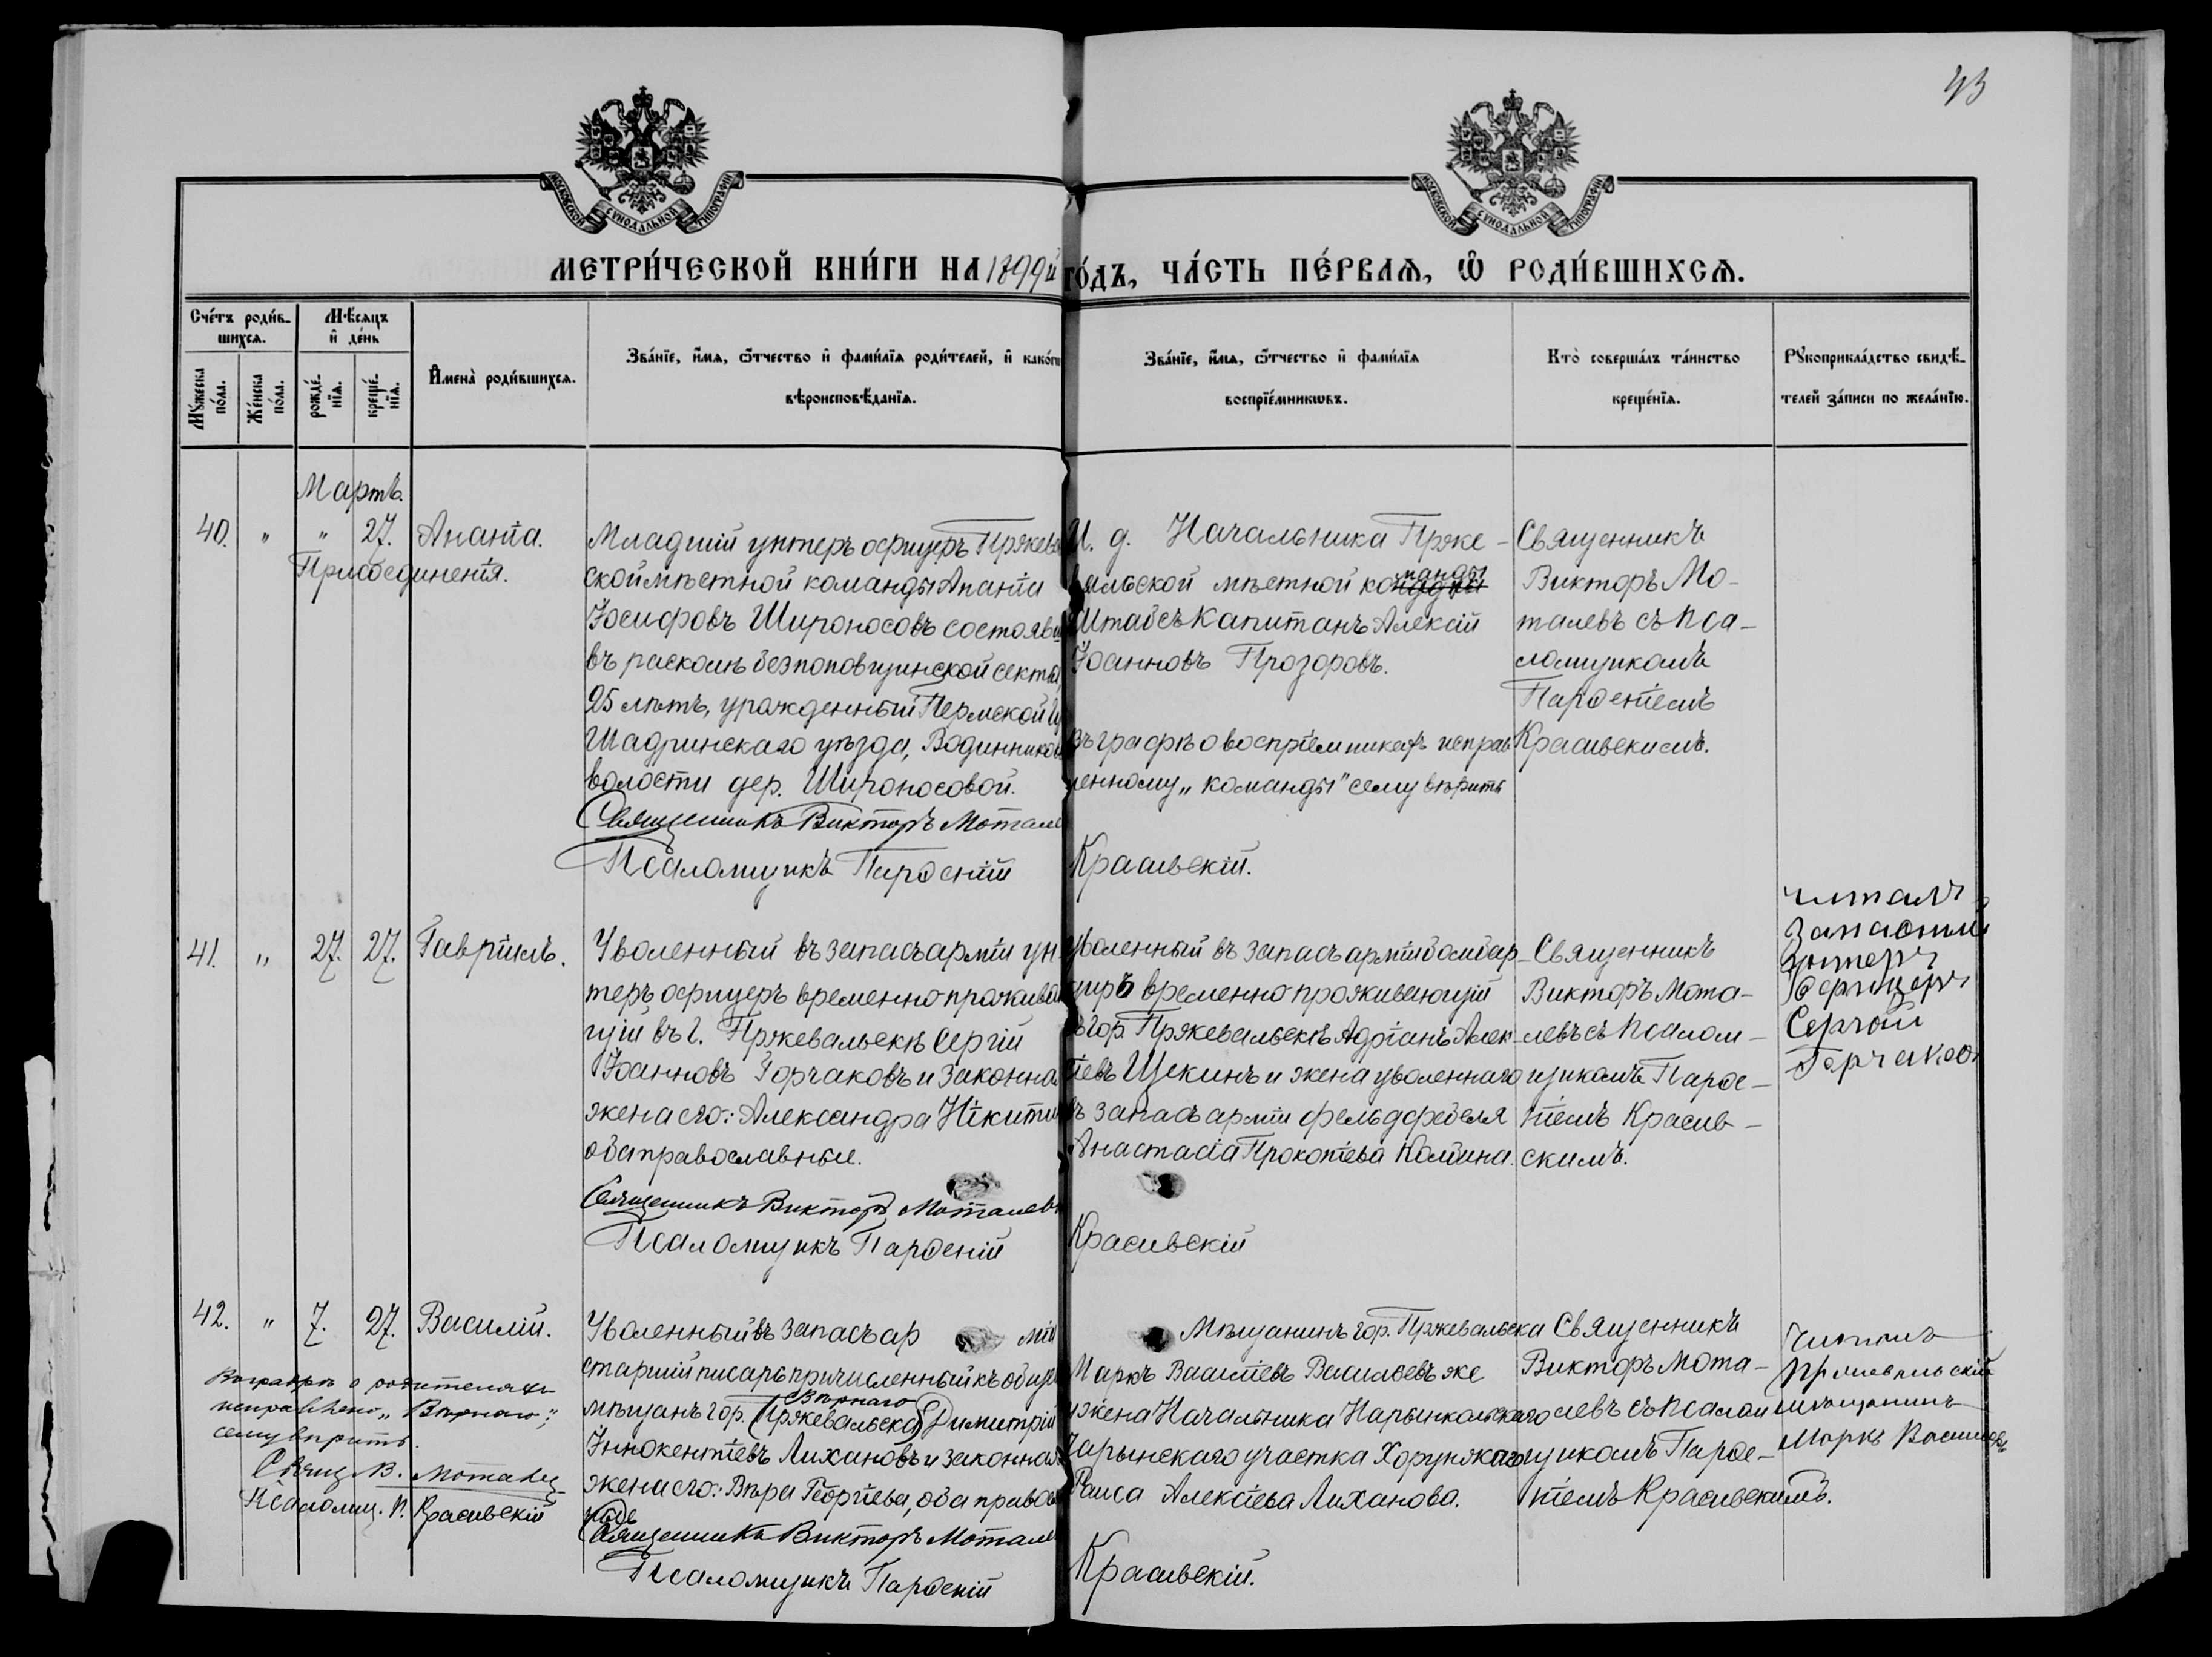 43
МОСКОВСКОЙ СѴНОДАЛЬНОЙ ТИПОГРАФІИ
МОСКОВСКОЙ СѴНОДАЛЬНОЙ ТИПОГРАФІИ
МЕТРИ́ЧЕСКОЙ КНИ́ГИ НА 1899й ГО́ДЪ, ЧА́СТЬ ПЕ́РВАЯ, Ѽ РОДИ́ВШИХСЯ.
Сче́тъ роди́в-
шихся.
Мѣ́сяцъ
и҆ де́нь
Мꙋ́жеска по́ла.
Же́нска по́ла.
рожде́-нїя.
креще́-нїя.
И҆мена̀ роди́вшихся.
Зва́нїе, и҆́мя, ѻ҆́тчество и҆ фами́лїя роди́телей, и҆ како́гѡ
вѣроисповѣ́данїя.
Зва́нїе, и҆́мя, ѻ҆́тчество и҆ фами́лїя
воспрїе́мникѡвъ.
Кто̀ соверша́лъ та́инство
креще́нїя.
Рꙋкоприкла́дство свидѣ́-
телей за́писи по жела́нїю.
Мартъ.
40. " " 27. Ананія.
Присоединенія.
Младшій унтеръ офицеръ Пржева
ской мѣстной команды Ананія
Іосифовъ Широносовъ состояв
въ расколѣ безпоповщинской секты,
25 лѣтъ, урожденный Пермской
Шадринскаго уѣзда, Водинников
волости дер. Широносовой.
Священникъ Викторъ Мотале
Псаломщикъ Парѳеній
И. д. Начальника Прже-
вальской мѣстной команды
Штабсъ Капитанъ Алексій
Іоанновъ Прозоровъ.
Въ графѣ о воспріемникахъ исправ
ленному „команды" сему вѣрить
Красивскій.
Священникъ
Викторъ Мо-
талевъ съ пса-
ломщикомъ
Парѳеніемъ
Красивскимъ.
41. " 27. 27. Гавріилъ.
Уволенный въ запасъ арміи ун
теръ офицеръ временно прожива
щій въ г. Пржевальскѣ Сергій
Іоанновъ Горчаковъ и законная
жена его: Александра Никити
оба православные.
Священникъ Викторъ Моталевъ
Псаломщикъ Парѳеній
Уволенный въ запасъ арміи бомбар-
диръ временно проживающій
въ гор. Пржевальскѣ Адріанъ Алек-
іевъ Щекинъ и жена уволеннаго
въ запасъ арміи фельдфебеля
Анастасія Прокопіева Колбина.
Красивскій
Священникъ
Викторъ Мота-
левъ съ псалом-
щикомъ Парѳе-
ніемъ Красив-
скимъ.
читалъ
Запасный
унтеръ
Офицеръ
Сергѣй
Горчаков
42. " 7. 27. Василій.
Въ графѣ о родителяхъ
исправлено „Вѣрнаго",
сему вѣрить.
Свящ. В. Моталев
Псаломщ. П. Красивскій
Уволенный въ запасъ ар міи
старшій писарь причисленный къ общ
Вѣрнаго
мѣщанъ гор. (Пржевальска) Димитрій
Иннокентіевъ Лихановъ и законная
жена его: Вѣра Георгіева, оба правосл
ные
Священникъ Викторъ Мотале
Псаломщикъ Парѳеній
Мѣщанинъ гор. Пржевальска
Маркъ Василіевъ Васильевъ же
и жена Начальника Нарынкольскаго
Чарынскаго участка Хорунжаго
Раиса Алексіева Лиханова.
Красивскій.
Священникъ
Викторъ Мота-
левъ съ псалом
щикомъ Парѳе-
ніемъ Красивскимъ.
Читалъ
Пржевальскій
мѣщанинъ
Маркъ Васильевъ